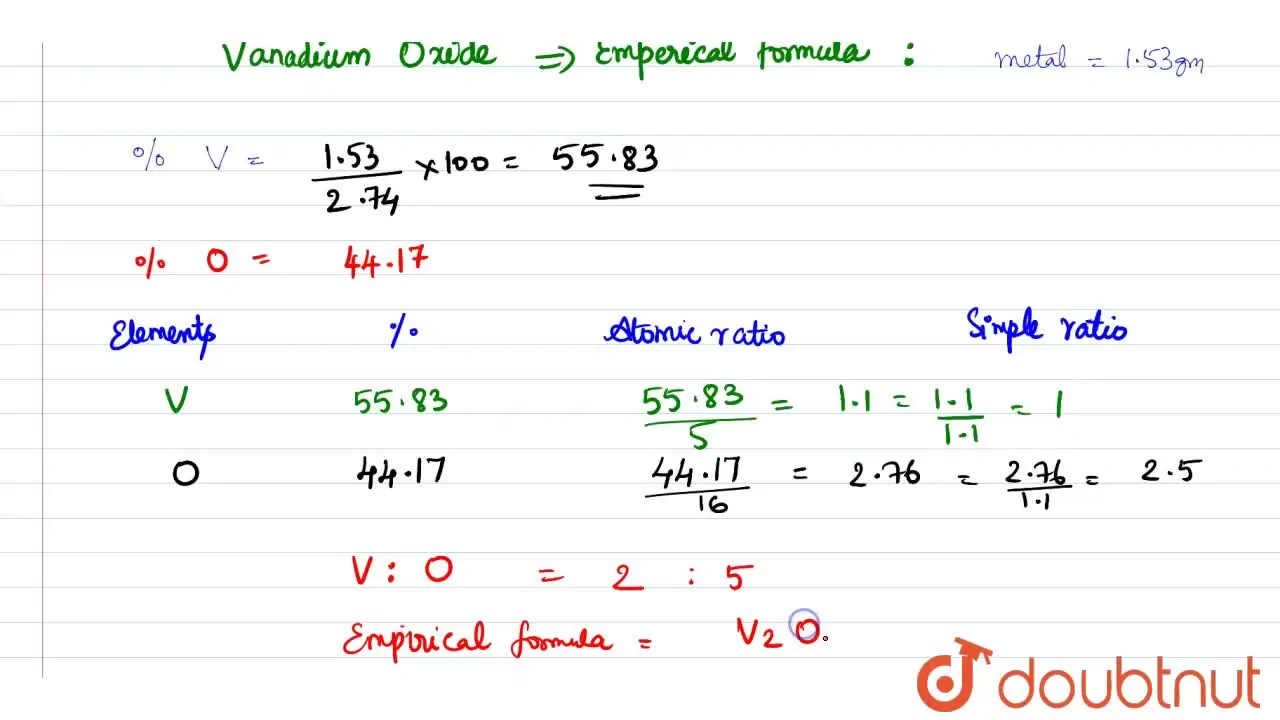 Vanadium Oxide ⇒ Emperical formula : metal = 1.53gm
% V = 1.53/2.74 × 100 = 55.83
% O = 44.17
Elements % Atomic ratio Simple ratio
V 55.83 55.83/5 = 1.1 = 1.1/1.1 = 1
O 44.17 44.17/16 = 2.76 = 2.76/1.1 = 2.5
V : O = 2 : 5
Empirical formula = V2 O.
doubtnut